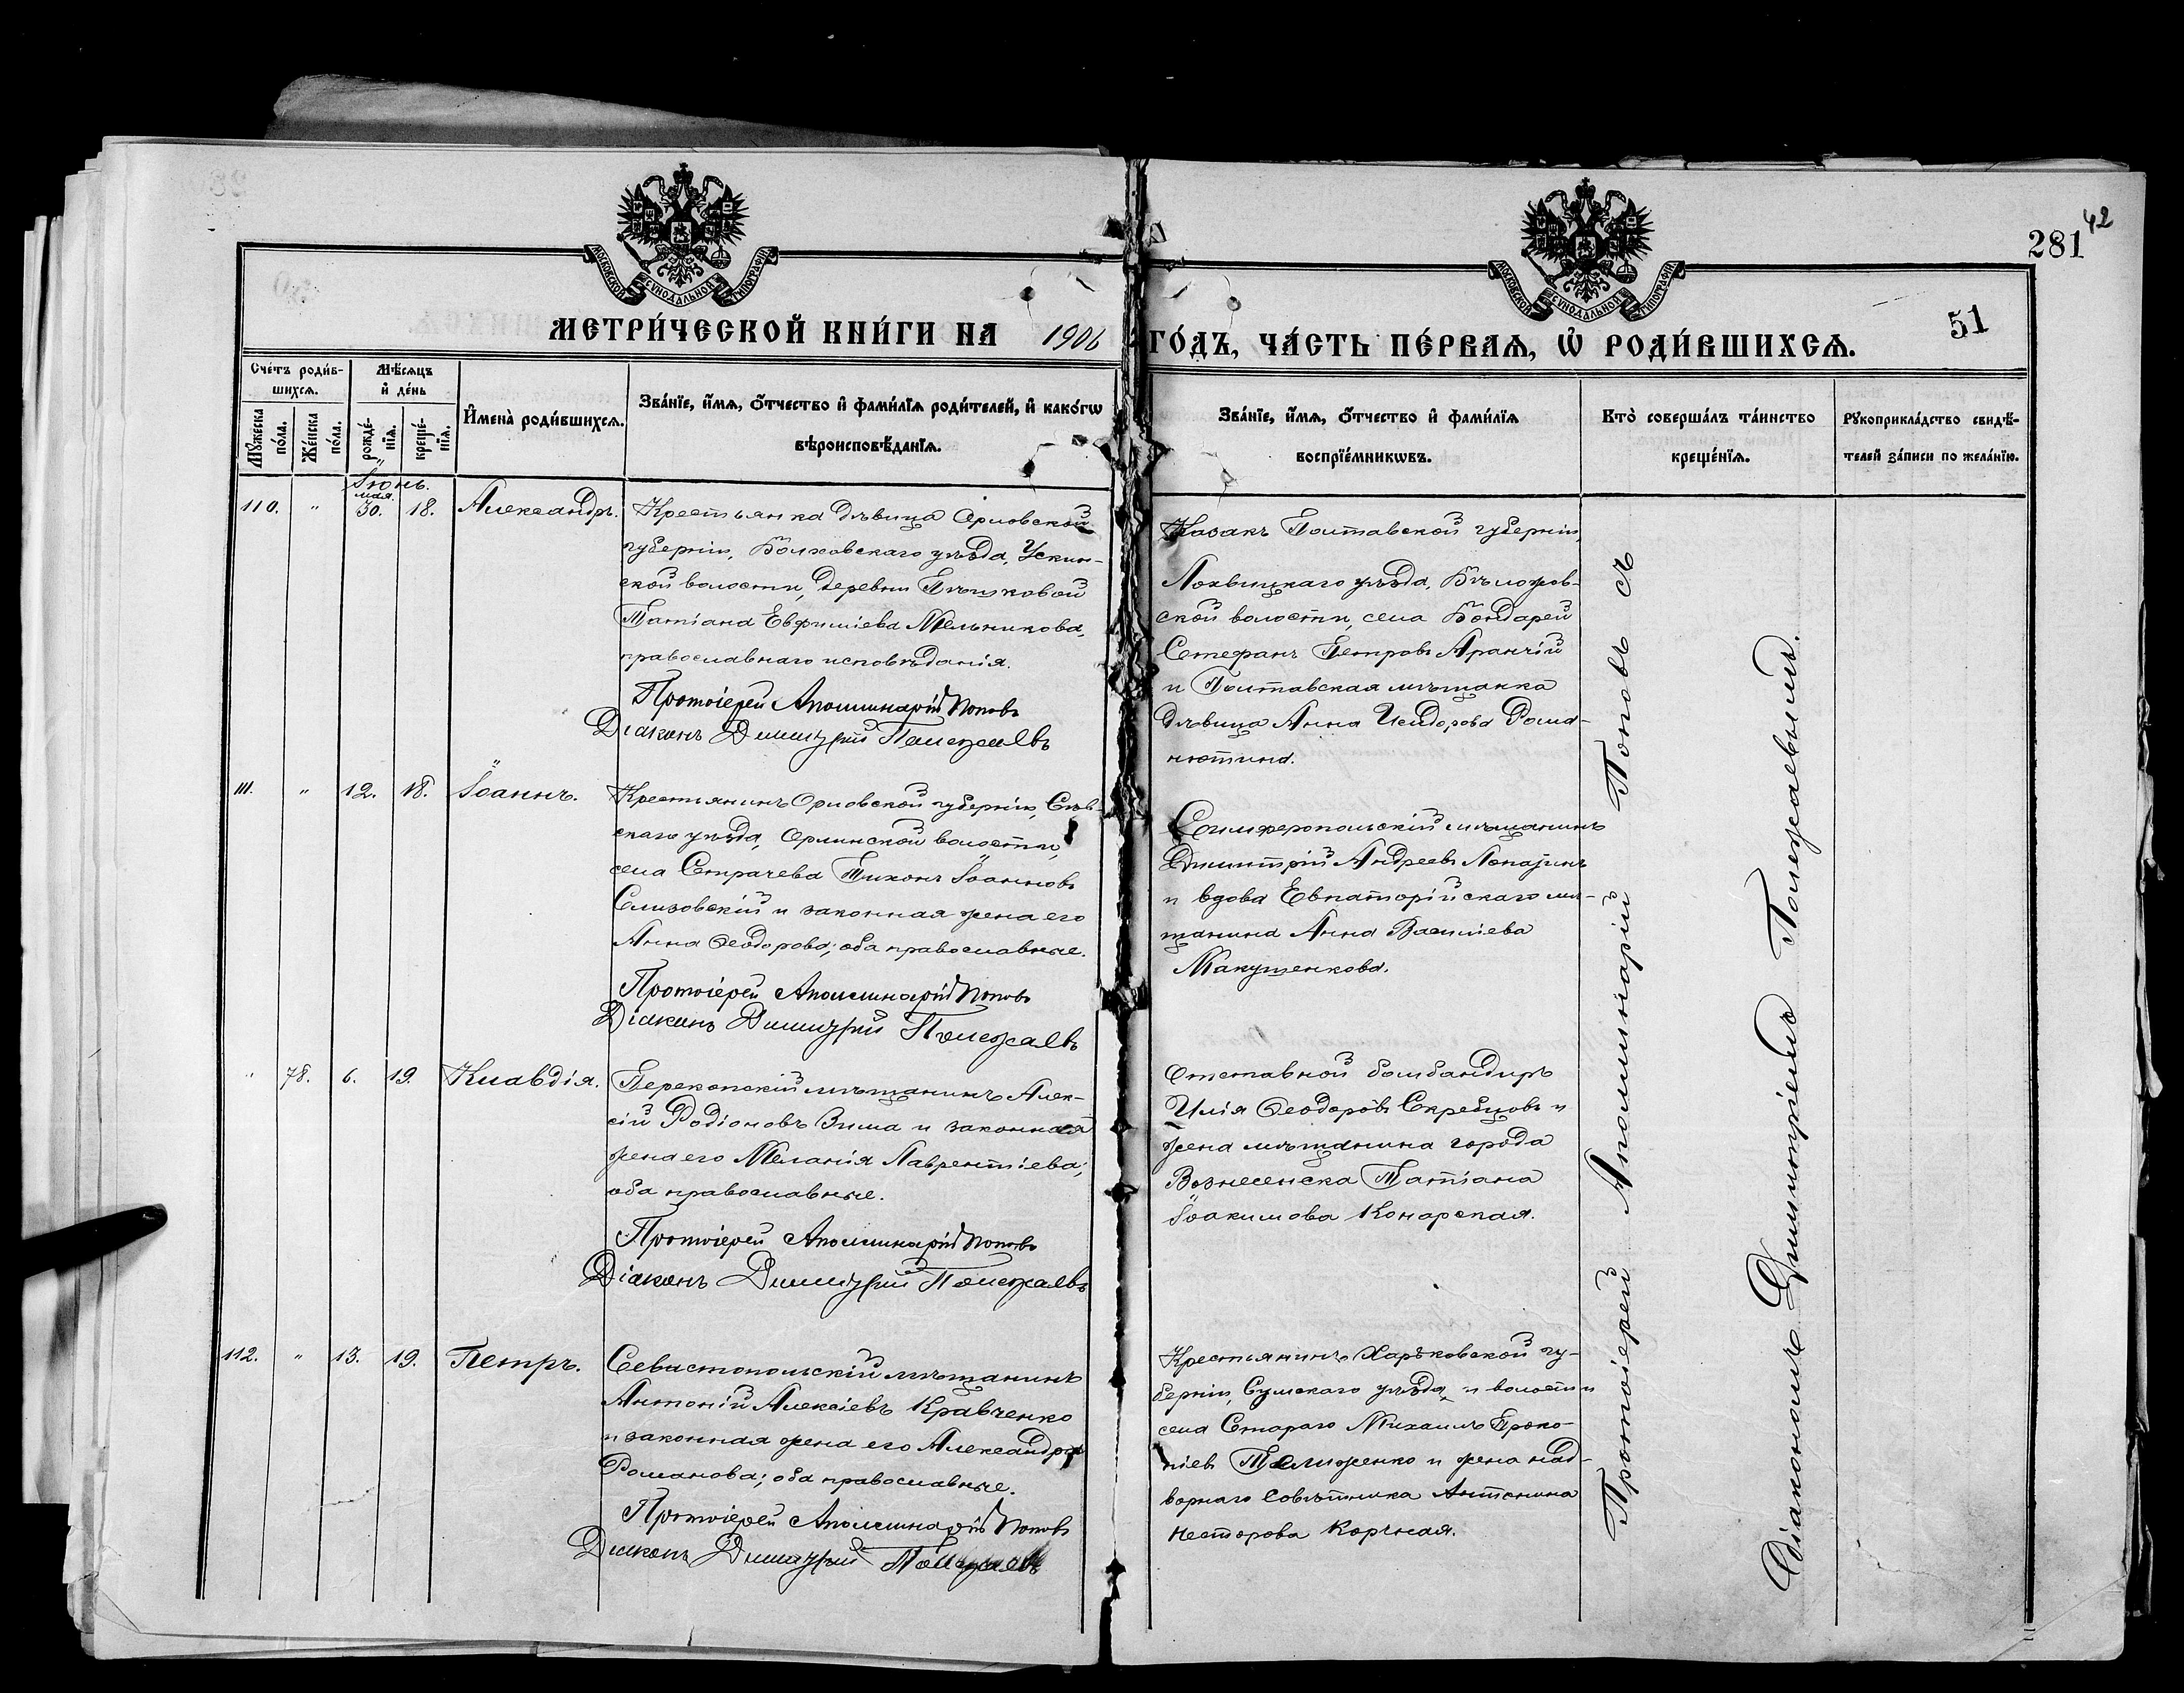 42
281
51
МОСКОВСКОЙ СѴНОДАЛЬНОЙ ТИПОГРАФІИ
МОСКОВСКОЙ СѴНОДАЛЬНОЙ ТИПОГРАФІИ
МЕТРИ́ЧЕСКОЙ КНИ́ГИ НА 1906 ГО́ДЪ, ЧА́СТЬ ПЕ́РВАѦ, Ѡ҆ РОДИ́ВШИХСѦ.
Сче́тъ роди́в-
шихсѧ.
Мꙋ́жеска
по́ла.
Же́нска
по́ла.
Мѣ́сѧцъ
и҆ де́нь
рожде́-
нїѧ.
креще́-
нїѧ.
И҆мена̀ роди́вшихсѧ.
Зва́нїе, и҆́мѧ, ѻ҆́тчество и҆ фами́лїѧ роди́телей, и҆ како́гѡ
вѣроисповѣ́данїѧ.
Зва́нїе, и҆́мѧ, ѻ҆́тчество и҆ фами́лїѧ
воспрїе́мникѡвъ.
Кто̀ соверша́лъ та́инство
креще́нїѧ.
Рꙋкоприкла́дство свидѣ́-
телей за́писи по жела́нїю.
Іюнь.
мая
110. " 30. 18. Александръ.
Крестьянка дѣвица Орловской
губерніи, Болховскаго уѣзда, Ускин-
ской волости, деревни Пѣшковой
Татіана Евфиміева Мельникова,
православнаго исповѣданія.
Протоіерей Аполлинарій Поповъ
Діаконъ Димитрій Полежаевъ
Казакъ Полтавской губерніи,
Лохвицкаго уѣзда, Бѣлоцов-
ской волости, села Бондарей
Стефанъ Петровъ Аранчій
и Полтавская мѣщанка
дѣвица Анна Исидорова Рома-
нютина.
111. " 12. 18. Іоаннъ.
Крестьянинъ Орловской губерніи, Сѣв-
скаго уѣзда, Орлинской волости,
села Страчева Тихонъ Іоанновъ
Слизовскій и законная жена его
Анна Ѳеодорова; оба православные.
Протоіерей Аполлинарій Поповъ
Діаконъ Димитрій Полежаевъ
Симферопольскій мѣщанинъ
Димитрій Андреевъ Лопатинъ
и вдова Евпаторійскаго мѣ-
щанина Анна Василіева
Макушенкова.
" 78. 6. 19. Клавдія.
Перекопскій мѣщанинъ Алек-
сій Родіоновъ Зима и законная
жена его Меланія Лаврентіева;
оба православные.
Протоіерей Аполлинарій Поповъ
Діаконъ Димитрій Полежаевъ
Отставной бомбандиръ
Илія Ѳеодоровъ Скребцовъ и
жена мѣщанина города
Вознесенска Татіана
Іоакимова Конарская.
112. " 13. 19. Петръ.
Севастопольскій мѣщанинъ
Антоній Алексіевъ Кравченко
и законная жена его Александра
Романова; оба православные.
Протоіерей Аполлинарій Поповъ
Діаконъ Димитрій Полежаевъ
Крестьянинъ Харьковской гу-
берніи, Сумскаго уѣзда, и волости
села Стараго Михаилъ Проко-
піевъ Толиженко и жена над-
ворнаго совѣтника Антонина
Несторова Корчная.
Протоіерей Аполлинарій Поповъ съ
Діакономъ Димитріемъ Полежаевымъ.